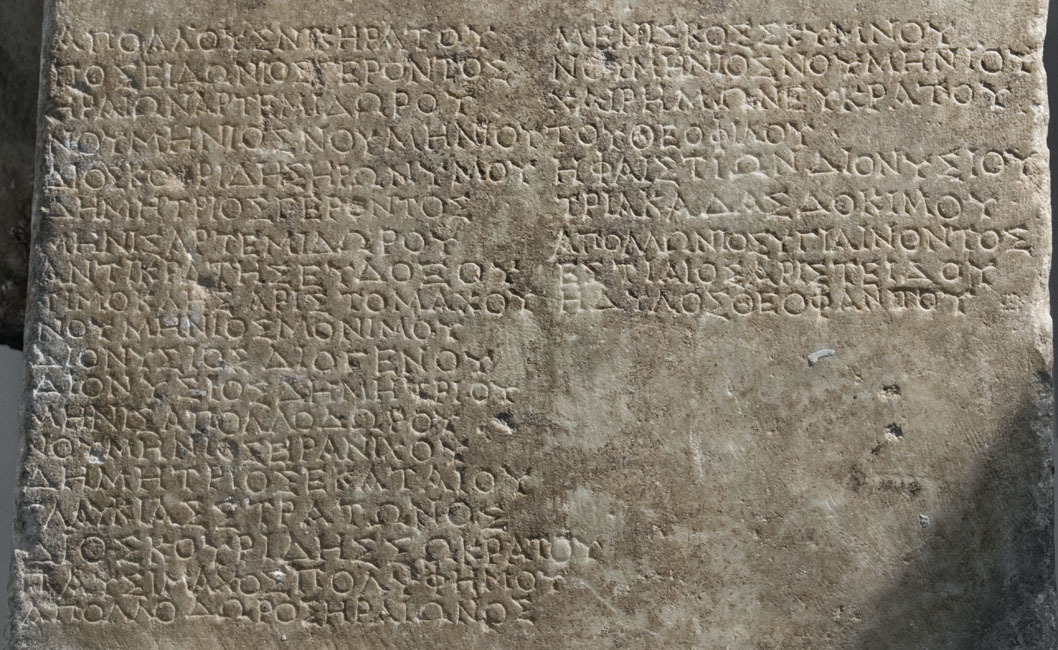 ΑΠΟΛΛΟΥΣΝΙΚΗΡΑΤΟΥ
ΠΟΣΕΙΔΩΝΙΟΣΓΕΡΟΝΤΟΣ
ΗΡΑΙΩΝΑΡΤΕΜΙΔΩΡΟΥ
ΝΟΥΜΗΝΙΟΣΝΟΥΜΗΝΙΟΥ
ΔΙΟΣΚΟΥΡΙΔΗΣΗΡΩΝΥΜΟΥ
ΔΗΜΗΤΡΙΟΣΓΕΡΟΝΤΟΣ
ΜΗΝΙΣΑΡΤΕΜΙΔΩΡΟΥ
ΑΝΤΙΚΡΑΤΗΣΕΥΔΟΞΟΥ
ΤΙΜΟΚΛΗΣΑΡΙΣΤΟΜΑΧΟΥ
ΝΟΥΜΗΝΙΟΣΜΟΝΙΜΟΥ
ΔΙΟΝΥΣΙΟΣΔΙΟΓΕΝΟΥ
ΔΙΟΝΥΣΙΟΣΔΗΜΗΤΡΙΟΥ
ΜΗΝΙΣΑΠΟΛΛΟΔΩΡΟΥ
ΔΗΜΗΤΡΙΟΣΕΚΑΤΑΙΟΥ
ΓΛΑΥΚΙΑΣΣΤΡΑΤΩΝΟΣ
ΔΙΟΣΚΟΥΡΙΔΗΣΣΩΚΡΑΤΟΥ
ΠΑΥΣΙΜΑΧΟΣΠΟΛΥΦΗΜΟΥ
ΑΠΟΛΛΟΔΩΡΟΣΗΡΑΙΩΝΟΣ
ΜΕΝΙΣΚΟΣΣΚΥΜΝΟΥ
ΝΟΥΜΗΝΙΟΣΝΟΥΜΗΝΙΟΥ
ΧΑΙΡΗΜΩΝΕΥΚΡΑΤΟΥ
ΤΟΥΘΕΟΦΙΛΟΥ
ΗΦΑΙΣΤΙΩΝΔΙΟΝΥΣΙΟΥ
ΤΡΙΑΚΑΔΑΣΔΟΚΙΜΟΥ
ΑΠΟΛΛΩΝΙΟΣΥΓΙΑΙΝΟΝΤΟΣ
ΕΣΤΙΑΙΟΣΑΡΙΣΤΕΙΔΟΥ
ΗΔΥΛΟΣΘΕΟΦΑΝΤΟΥ